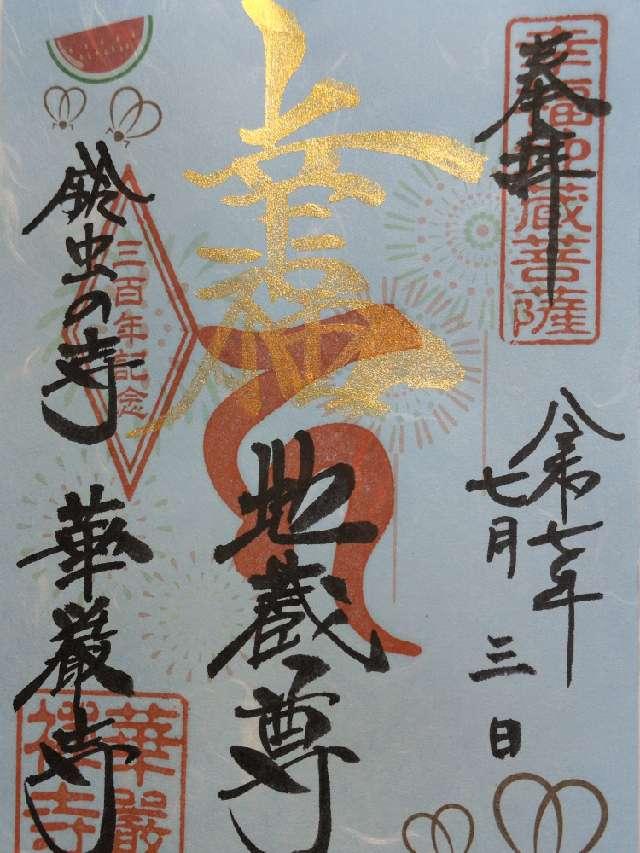 奉拝
幸福地蔵菩薩
令和七年
七月三日
幸福
地蔵尊
三百年記念
鈴虫の寺
華厳寺
華嚴
禅寺